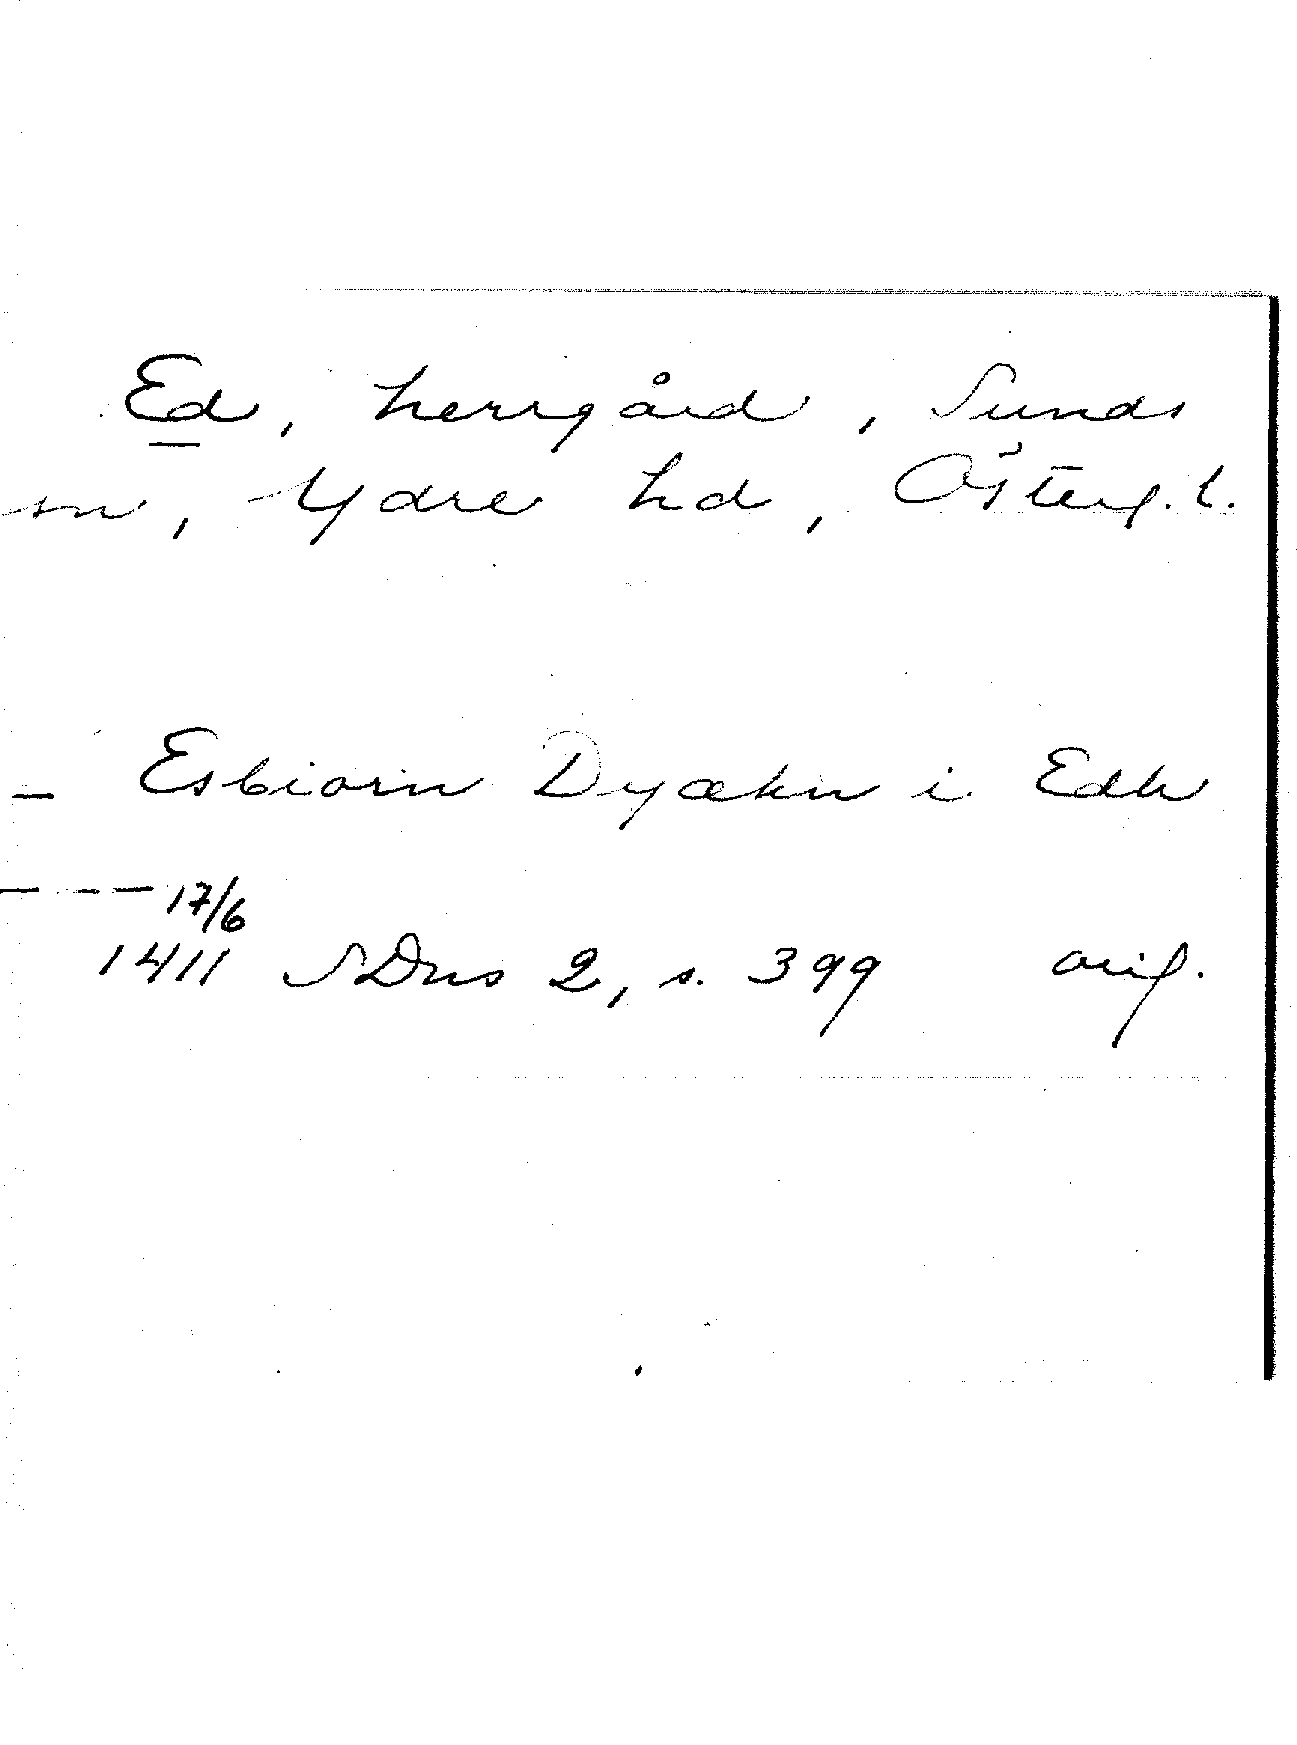 Ed, herrgård, Sunds
sn, Ydre hd, Österg.l.
– Esbiorn Dyækn i Edh
– – – – 17/6
1411 SDns 2, s. 399 orig.